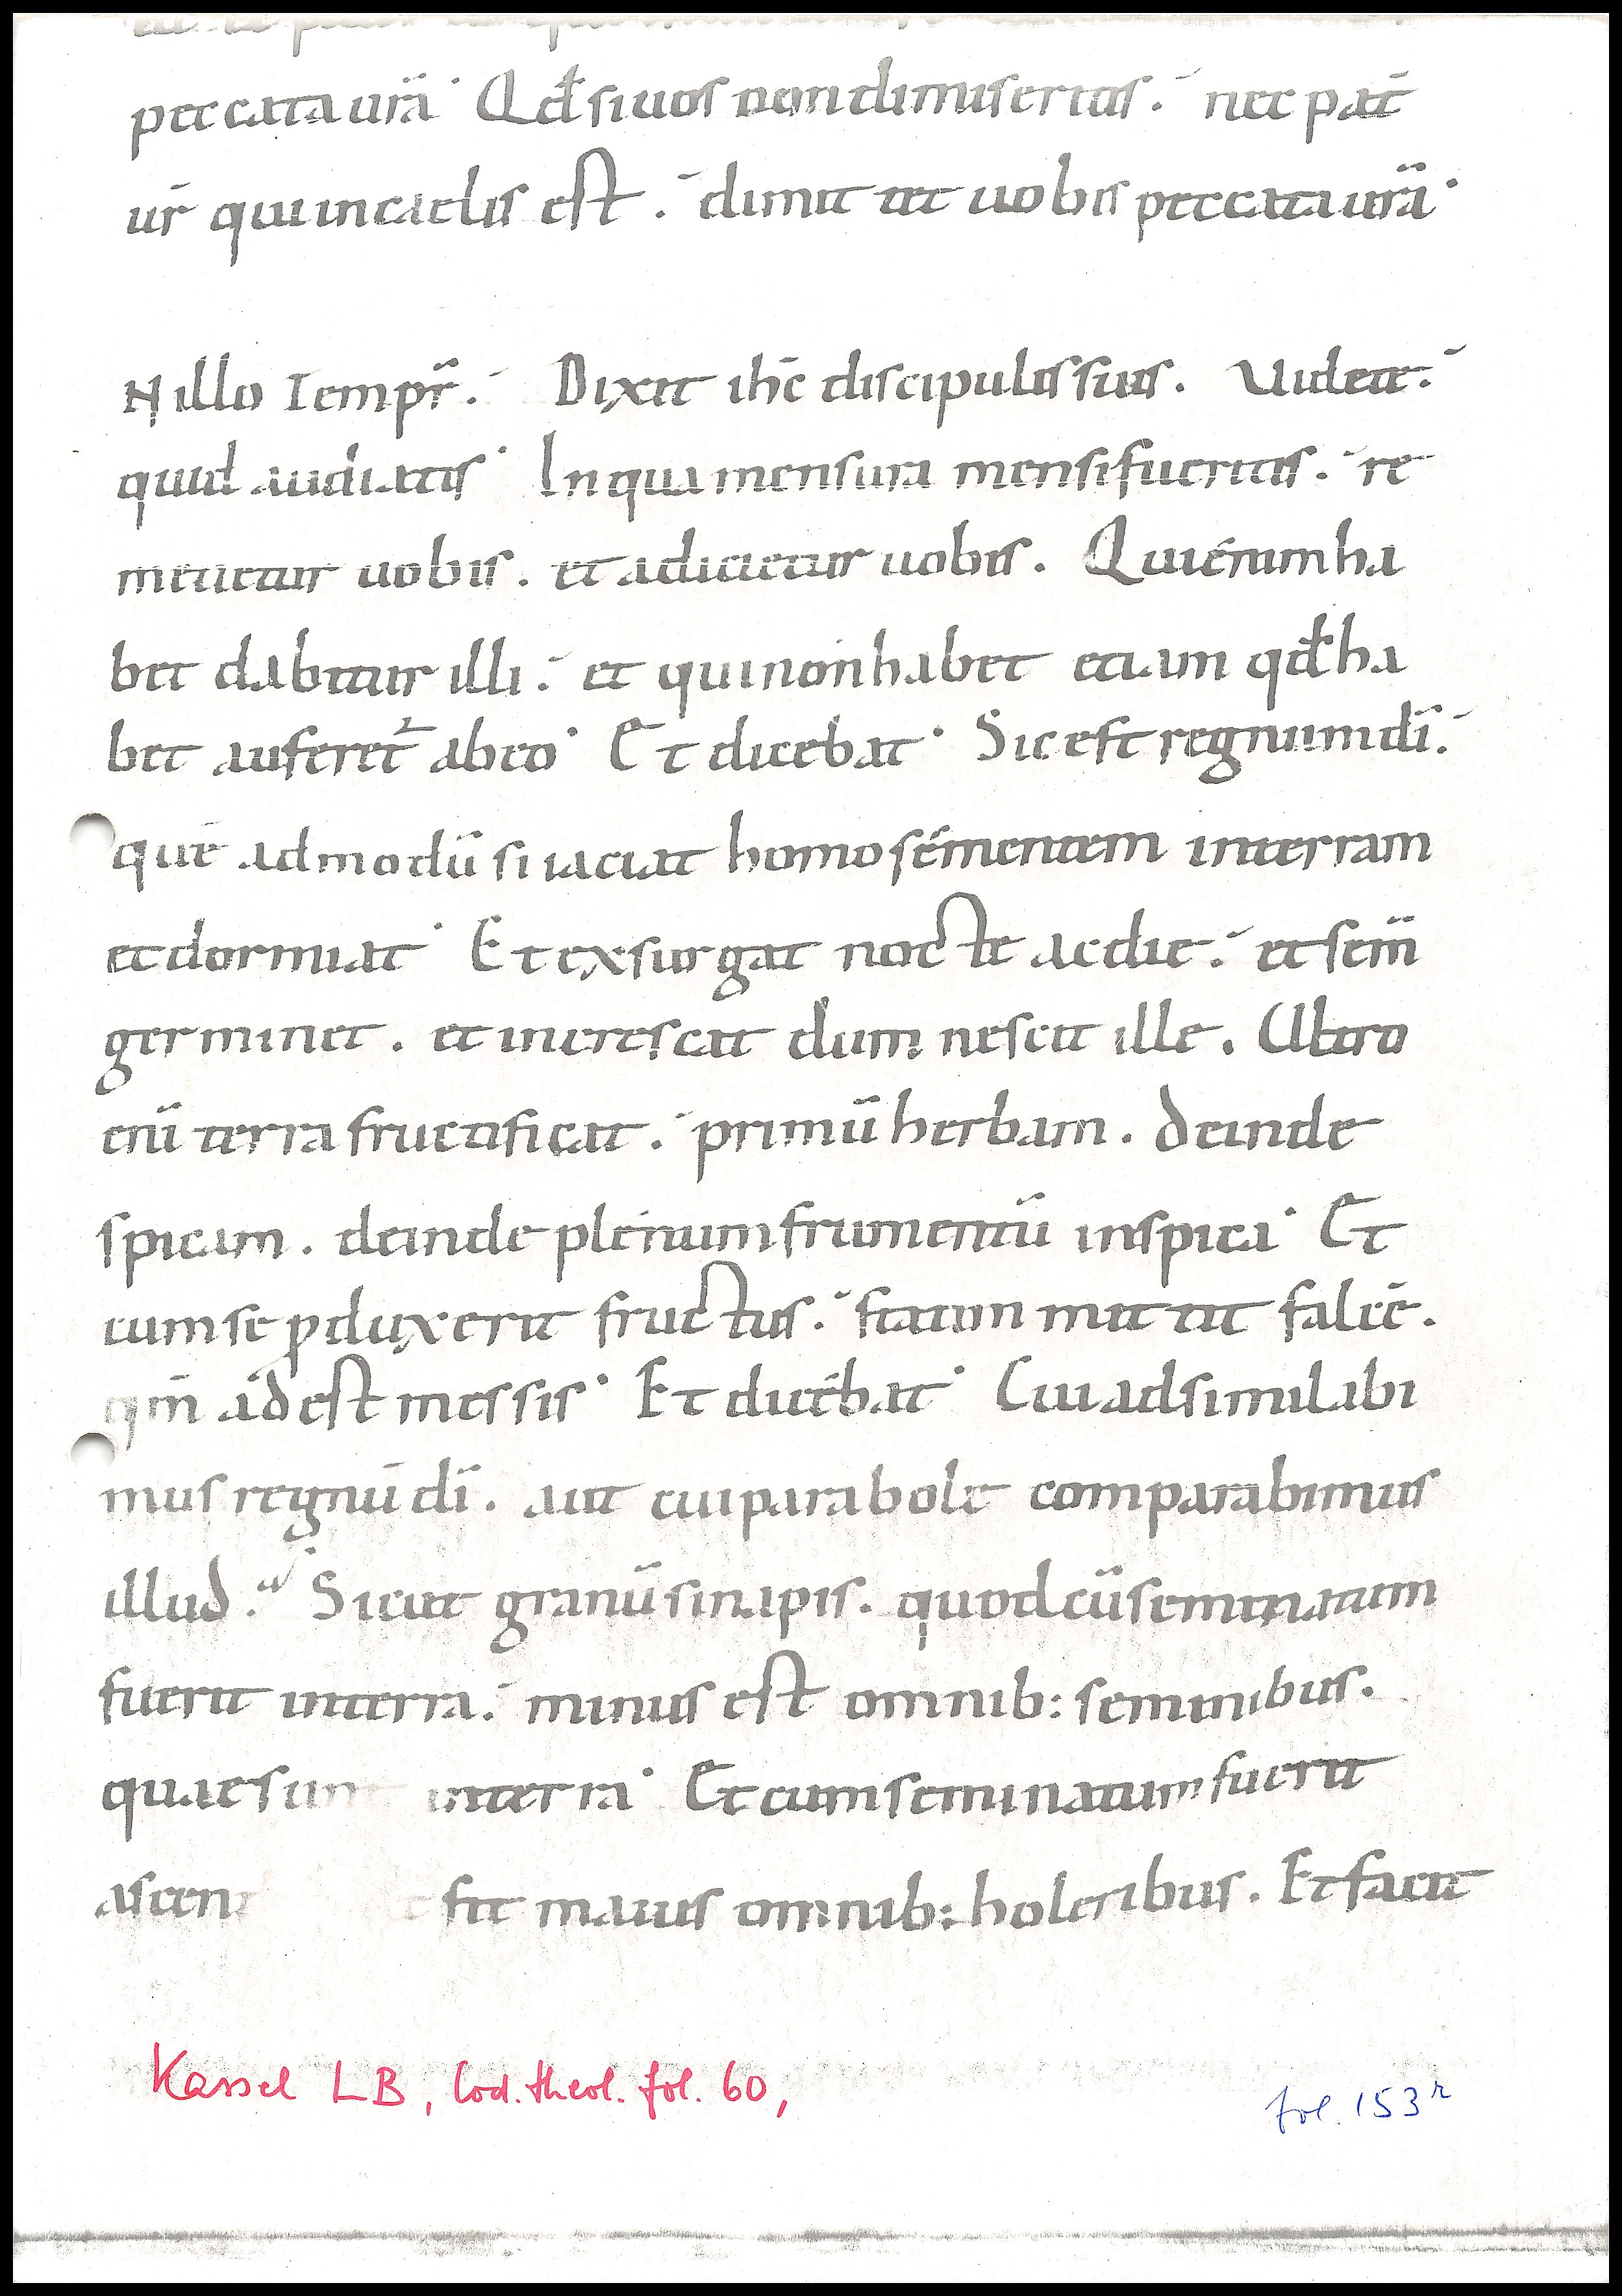 peccata ur̄a· Qd̄ si uos non dimiseritis. nec pat̄
ur̄ qui in caelis est. dimittet uobis peccata ur̄a·
N illo Temp̄r. Dixit ihc̄ discipulis suis. Uidete.
quid audiatis· In qua mensura mensi fueritis. re
metietur uobis. et adicietur uobis. Qui enim ha
bet dabitur illi. et qui non habet etiam qd̄ ha
bet auferet̄ ab eo· Et dicebat· Sic est regnum dī.
quē admodū si iaciat homo sementem in terram
et dormiat· Et exsurgat nocte ac die. et sem̄
germinet. et increscat dum nescit ille. Ultro
enī terra fructificat. primū herbam. deinde
spicam. deinde plenum frumentū in spica· Et
cum se pduxerit fructus. statim mittit falcē.
qm̄ adest messis· Et dicebat· Cui adsimilabi
mus regnū dī. aut cui parabole comparabimus
illud. Sicut granū sinapis. quod cū seminatum
fuerit in terra. minus est omnib: seminibus.
quae sunt in terra· Et cum seminatum fuerit
ascen fit maius omnib: holeribus. Et facit
Kassel LB, Cod. theol. fol. 60,
fol. 153r